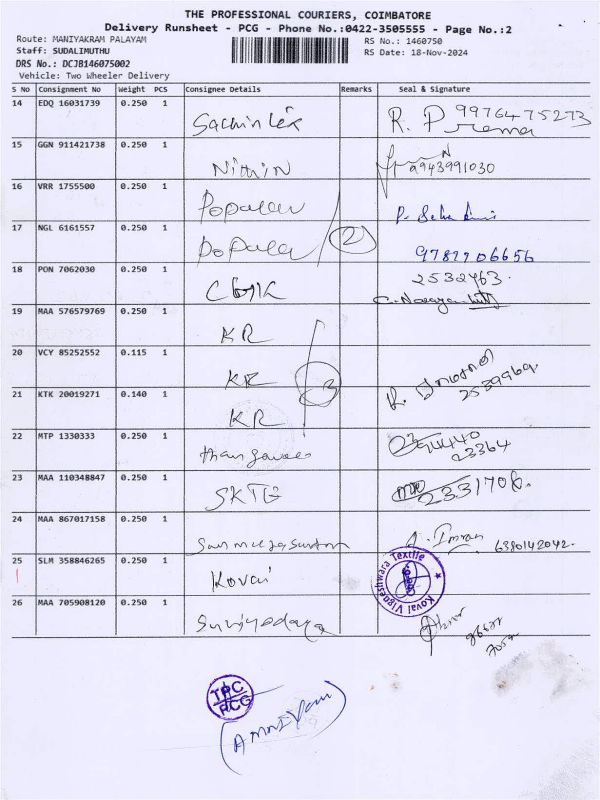 THE PROFESSIONAL COURIERS, COIMBATORE
Delivery Runsheet - PCG - Phone No.:0422-3505555 - Page No.:2
Route: MANIYAKRAM PALAYAM RS No.: 1460750
Staff: SUDALIMUTHU RS Date: 18-Nov-2024
DRS No.: DCJB146075002
Vehicle: Two Wheeler Delivery
S No Consignment No Weight PCS Consignee Details Remarks Seal & Signature
14 EDQ 16031739 0.250 1 R. Prema 9976475273
15 GGN 911421738 0.250 1 Nithin 9943991030
16 VRR 1755500 0.250 1 Popular
17 NGL 6161557 0.250 1 Popula 2
18 PON 7062030 0.250 1 2532463.
19 MAA 576579769 0.250 1 KR
20 VCY 85252552 0.115 1 KR 3
21 KTK 20019271 0.140 1 KR 2539969
22 MTP 1330333 0.250 1
23 MAA 110348847 0.250 1 SKTG 2331708.
24 MAA 867017158 0.250 1 Imran 6380142042.
25 SLM 358846265 0.250 1 Kovai Kovai Vigneshwara Textile
26 MAA 705908120 0.250 1 Suriyodaya
TPC
PCG